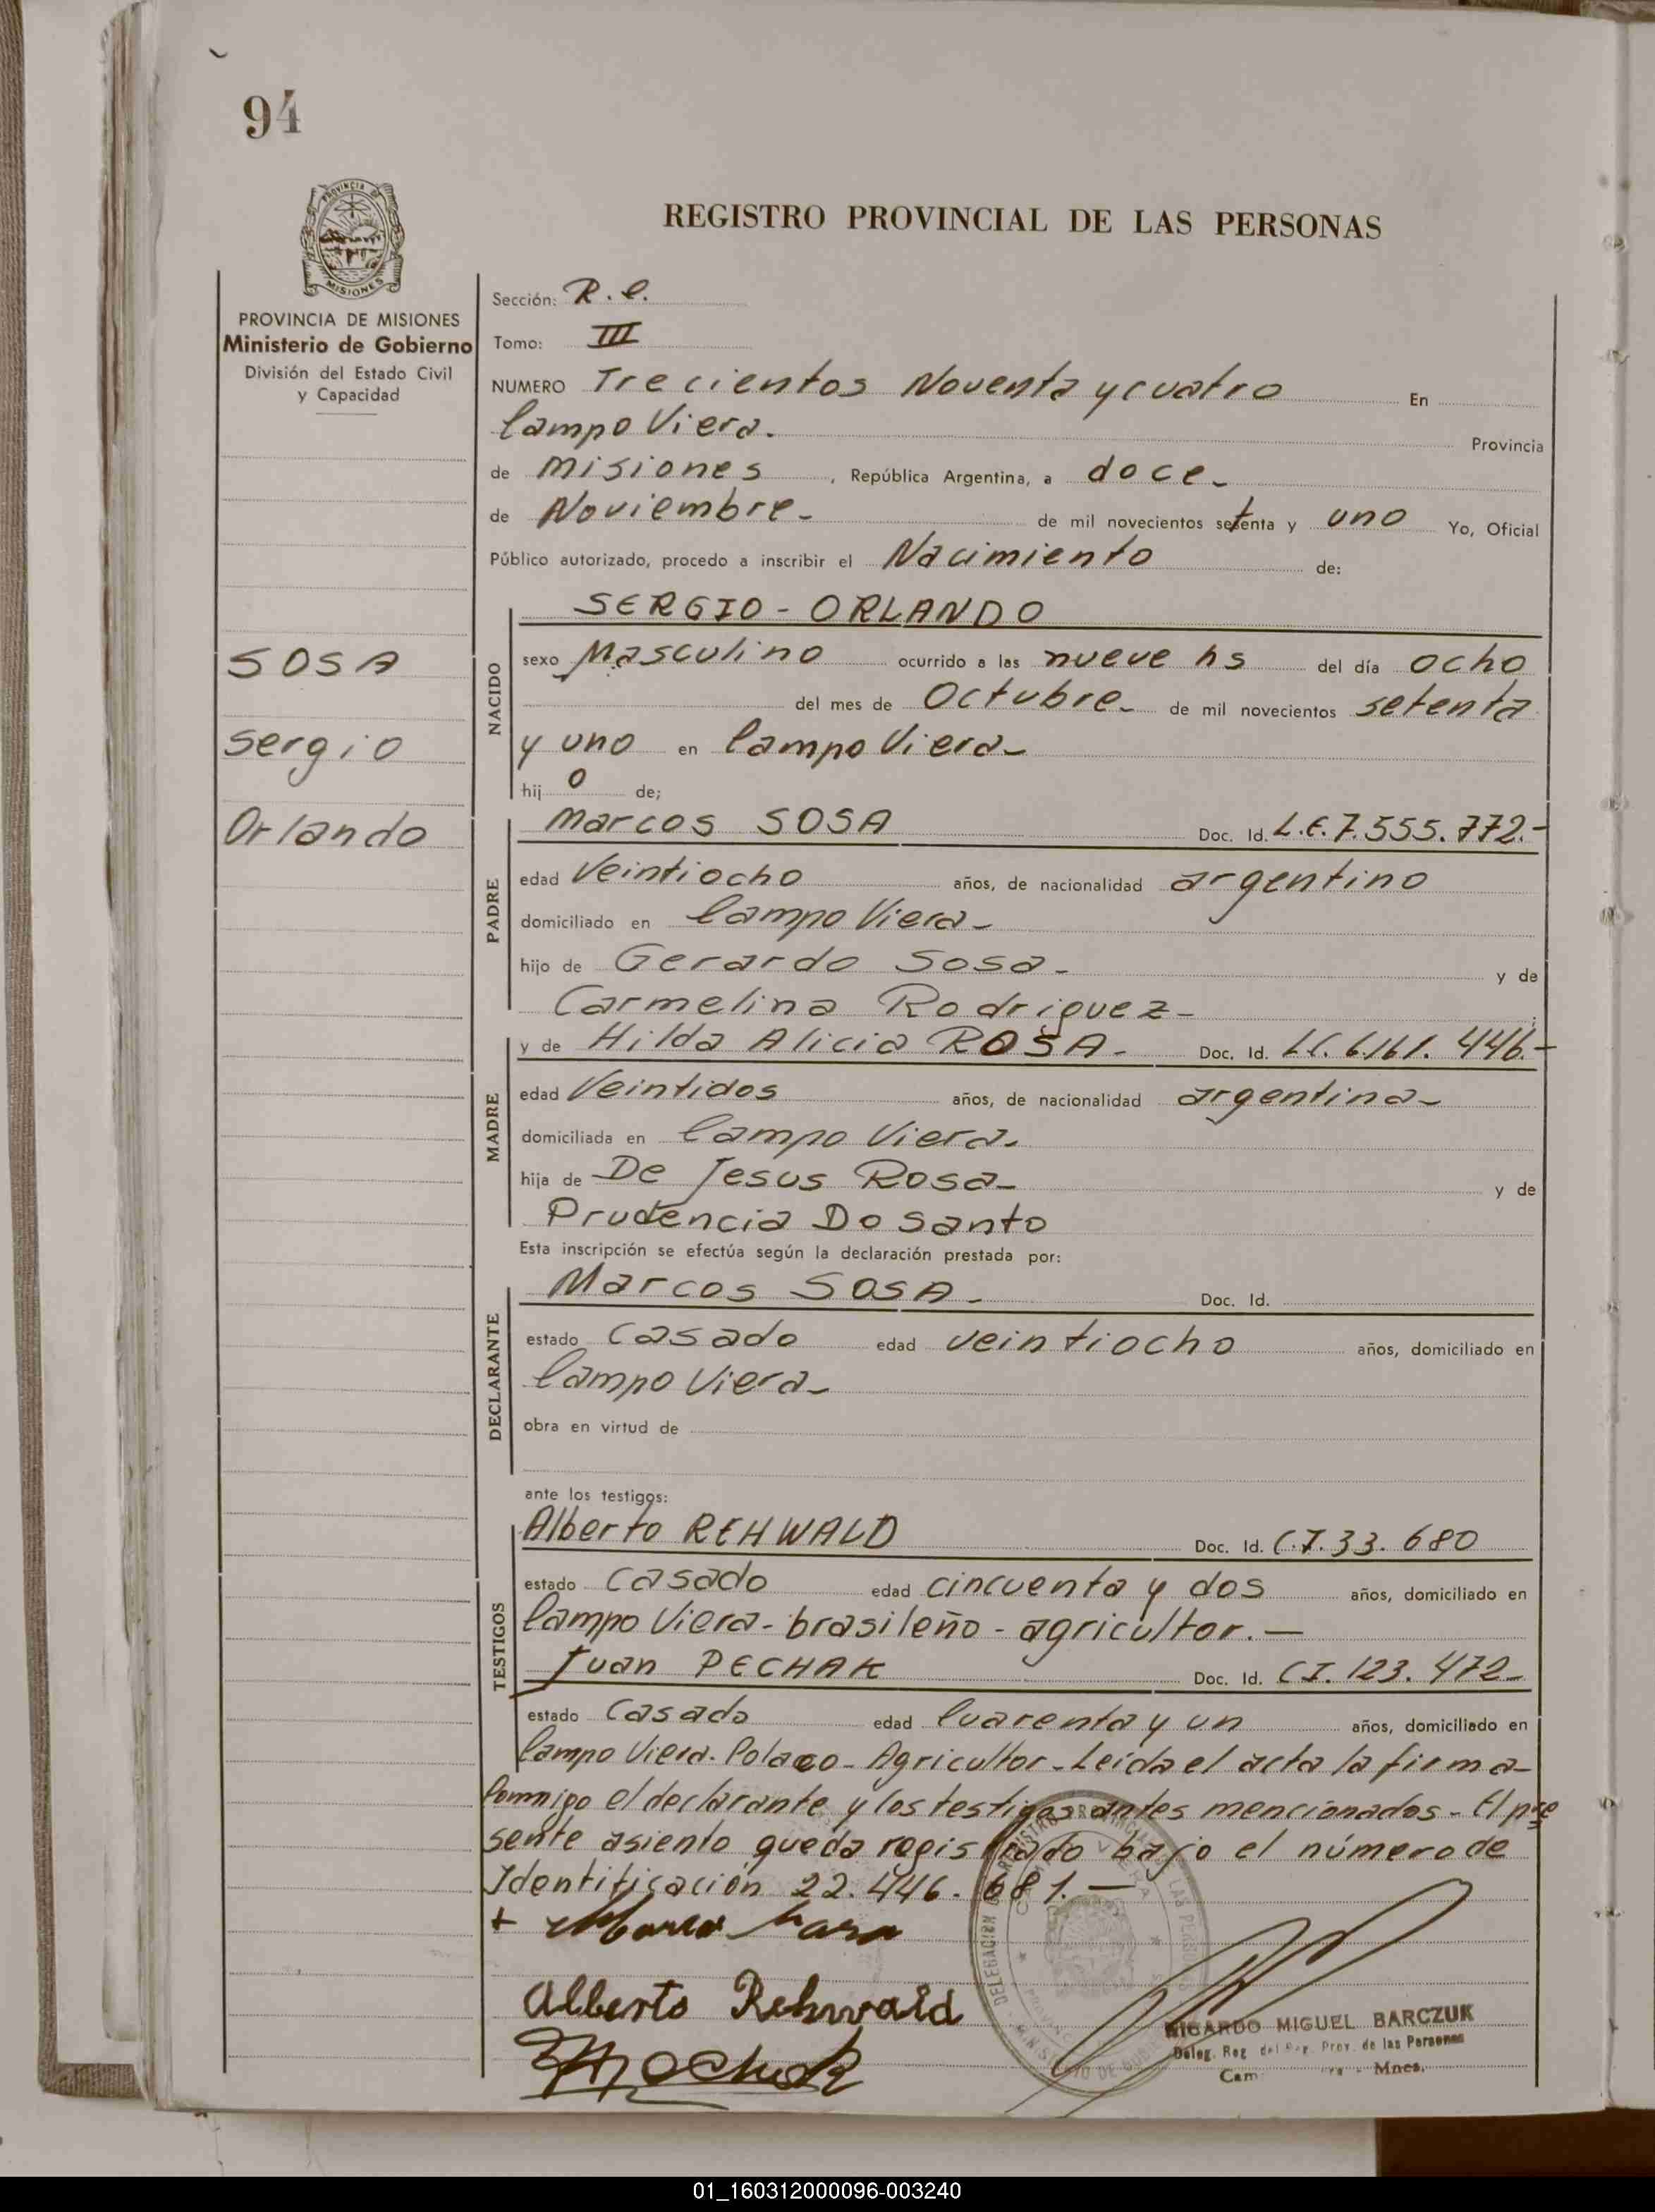 94
PROVINCIA DE
MISIONES
REGISTRO PROVINCIAL DE LAS PERSONAS
PROVINCIA DE MISIONES
Ministerio de Gobierno
División del Estado Civil
y Capacidad
SOSA
Sergio
Orlando
Sección: R.C.
Tomo: III
NUMERO Trecientos Noventa y cuatro En
Campo Viera. Provincia
de Misiones, República Argentina, a doce-
de Noviembre- de mil novecientos setenta y uno Yo, Oficial
Público autorizado, procedo a inscribir el Nacimiento de:
NACIDO
SERGIO - ORLANDO
sexo Masculino ocurrido a las nueve hs del día ocho
del mes de Octubre- de mil novecientos setenta
y uno en Campo Viera-
hijo de;
PADRE
Marcos SOSA Doc. Id. L.E.7.555.772.-
edad Veintiocho años, de nacionalidad argentino
domiciliado en Campo Viera-
hijo de Gerardo Sosa- y de
Carmelina Rodriguez-
MADRE
y de Hilda Alicia ROSA- Doc. Id. LC. 6.161.446.-
edad Veintidos años, de nacionalidad argentina-
domiciliada en Campo Viera.
hija de De Jesus Rosa- y de
Prudencia Do Santo
Esta inscripción se efectúa según la declaración prestada por:
DECLARANTE
Marcos SOSA- Doc. Id.
estado Casado edad veintiocho años, domiciliado en
Campo Viera-
obra en virtud de
ante los testigos:
TESTIGOS
Alberto REHWALD Doc. Id. C.I.33.680
estado Casado edad cincuenta y dos años, domiciliado en
Campo Viera- brasileño - agricultor.-
Juan PECHAK Doc. Id. CI. 123.472-
estado Casado edad Cuarenta y un años, domiciliado en
Campo Viera. Polaco- Agricultor-Leída el acta la firma-
Conmigo el declarante y los testigos antes mencionados- El pre
sente asiento queda registrado bajo el número de
Identificación 22.446.681.-
Alberto Rehwald
RICARDO MIGUEL BARCZUK
Deleg. Reg. Prov. de las Personas
Mnes.
01_160312000096-003240